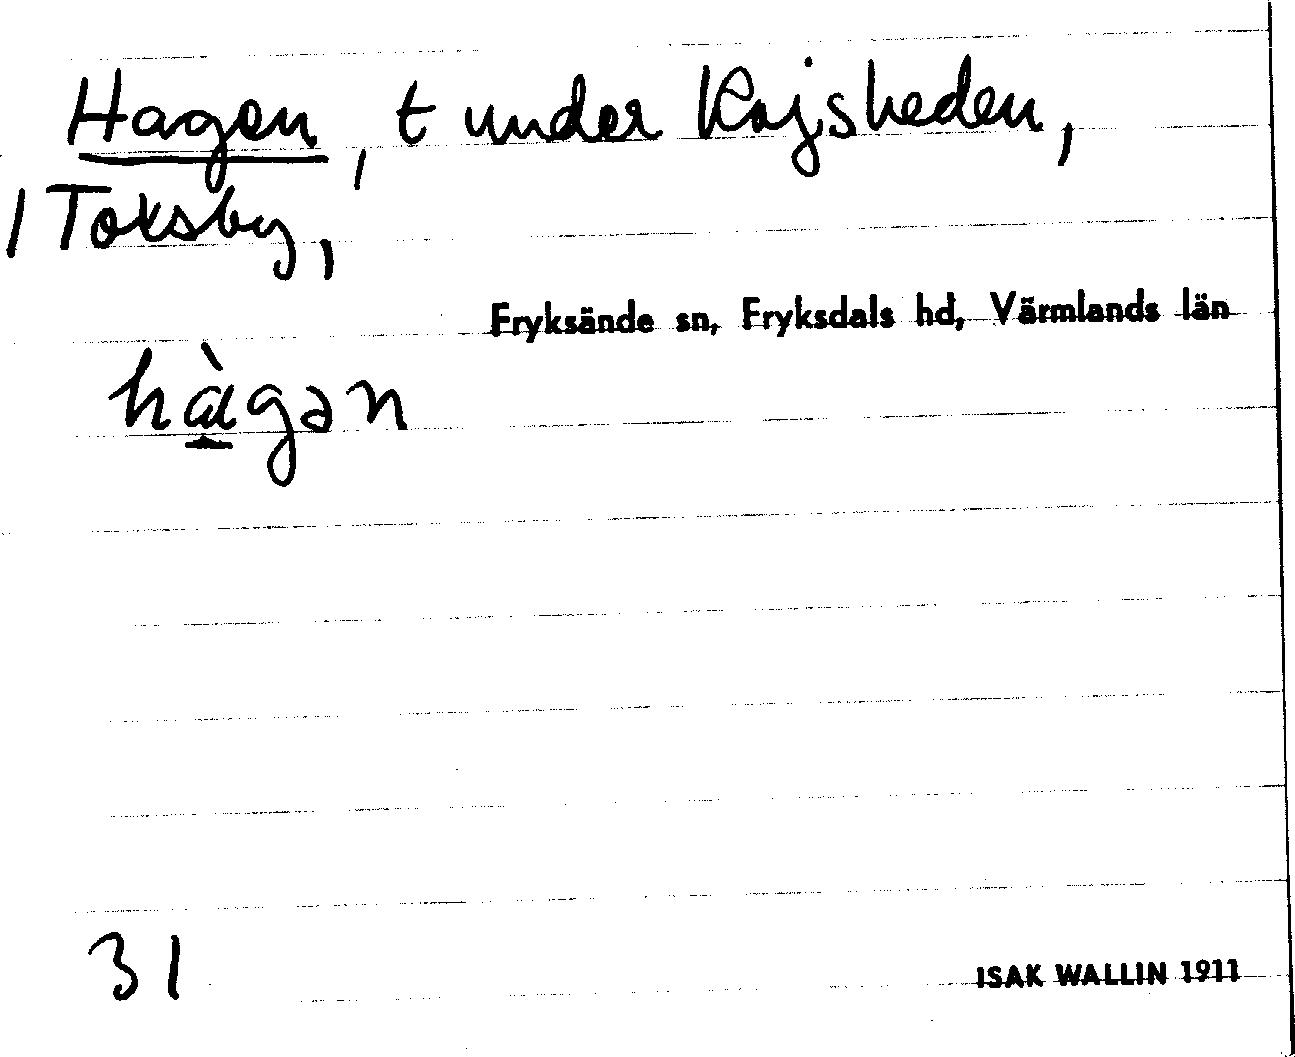 Hagen, t under Kajsheden,
/ Toksby,
Fryksände sn, Fryksdals hd, Värmlands län
hàgən
31
ISAK WALLIN 1911